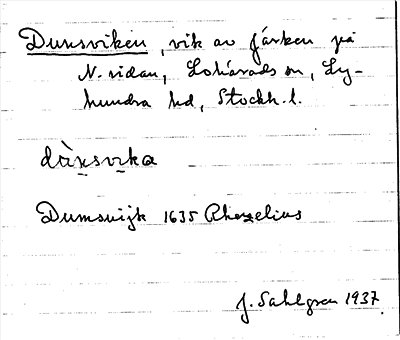 Dunsviken, vik av Järken på
N. sidan, Lohärads sn, Ly-
hundra hd, Stockh. l.
dùnsvika
Dumsvijk 1635 Rhezelius
J. Sahlgren 1937